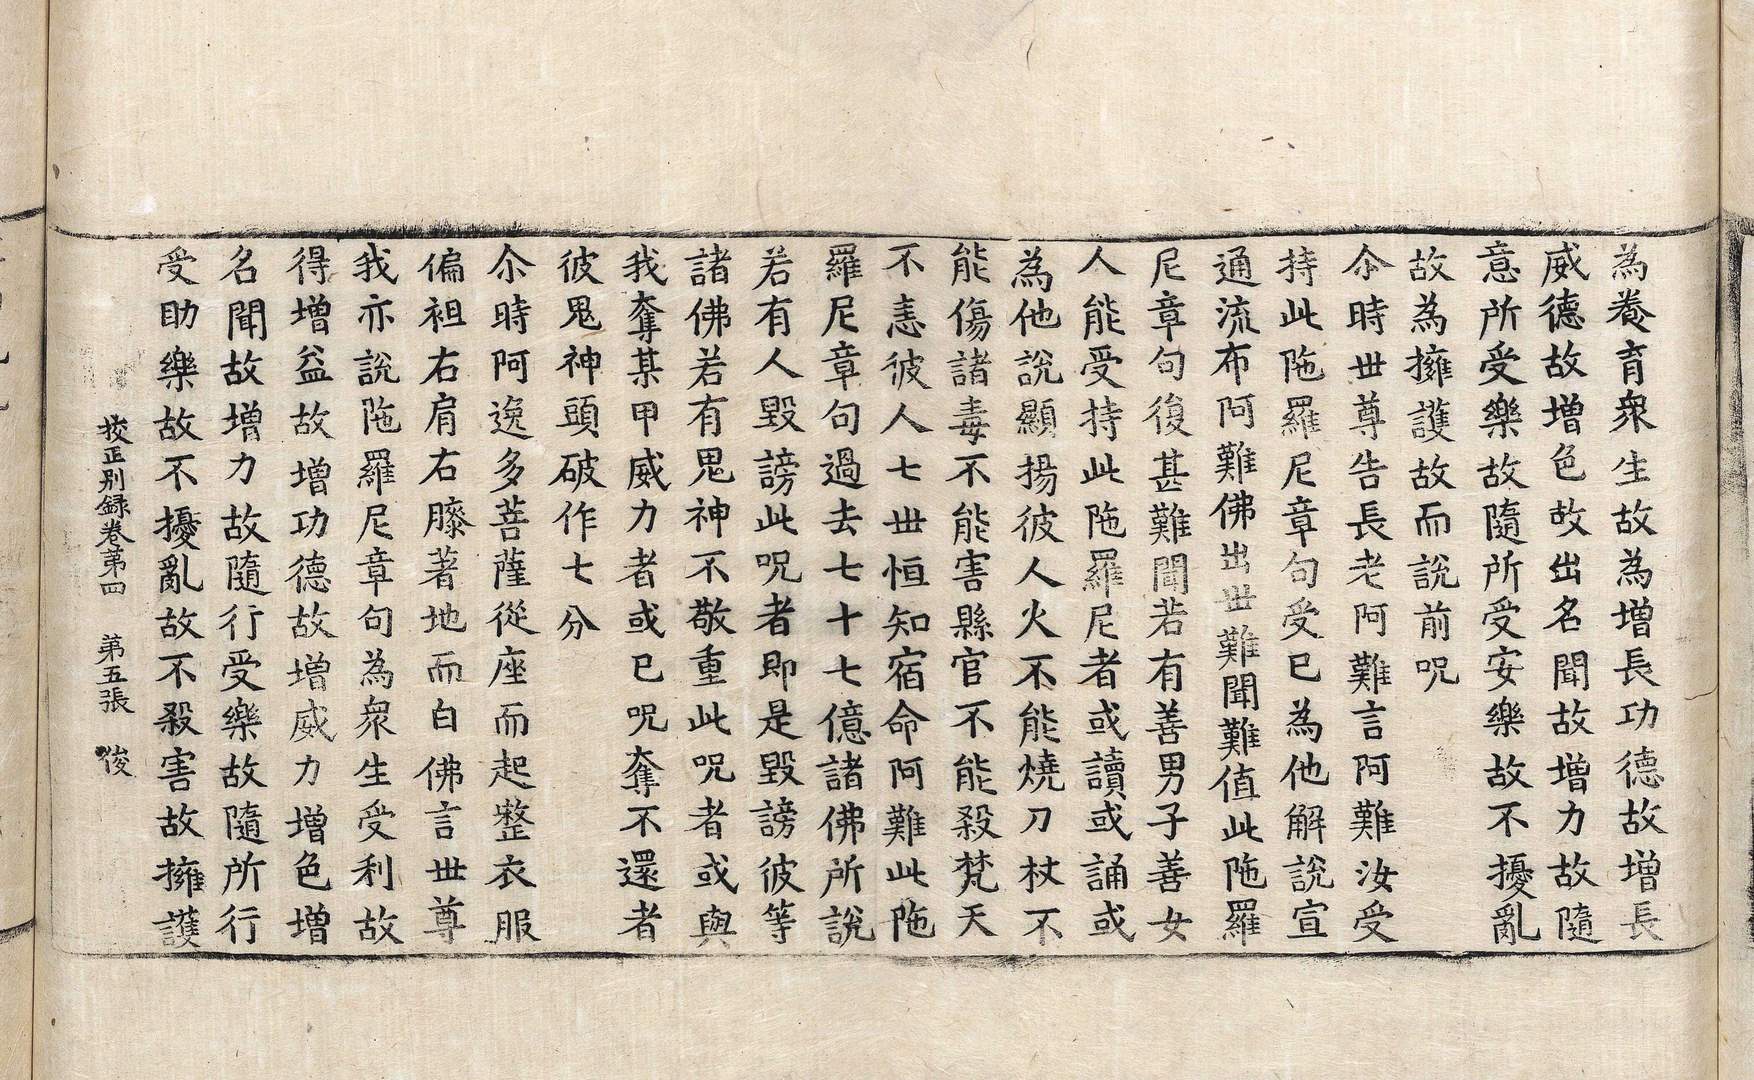 為養育衆生故為增長功德故增長
威德故增色故出名聞故增力故隨
意所受樂故隨所受安樂故不擾亂
故為擁護故而說前呪
尒時世尊告長老阿難言阿難汝受
持此陁羅尼章句受已為他解說宣
通流布阿難佛出世難聞難值此陁羅
尼章句復甚難聞若有善男子善女
人能受持此陁羅尼者或讀或誦或
為他說顯揚彼人火不能燒刀杖不
能傷諸毒不能害縣官不能殺梵天
不恚彼人七世恒知宿命阿難此陁
羅尼章句過去七十七億諸佛所說
若有人毀謗此呪者即是毀謗彼等
諸佛若有鬼神不敬重此呪者或與
我奪某甲威力者或已呪奪不還者
彼鬼神頭破作七分
尒時阿逸多菩薩從座而起整衣服
偏袒右肩右膝著地而白佛言世尊
我亦說陁羅尼章句為衆生受利故
得增益故增功德故增威力增色增
名聞故增力故隨行受樂故隨所行
受助樂故不擾亂故不殺害故擁護
挍正别録卷第四 第五張 俊